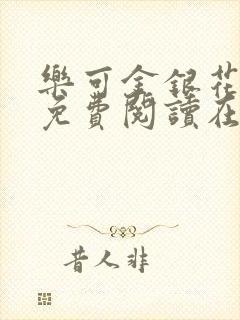 樂可金銀花
免費閱讀在
昔人非